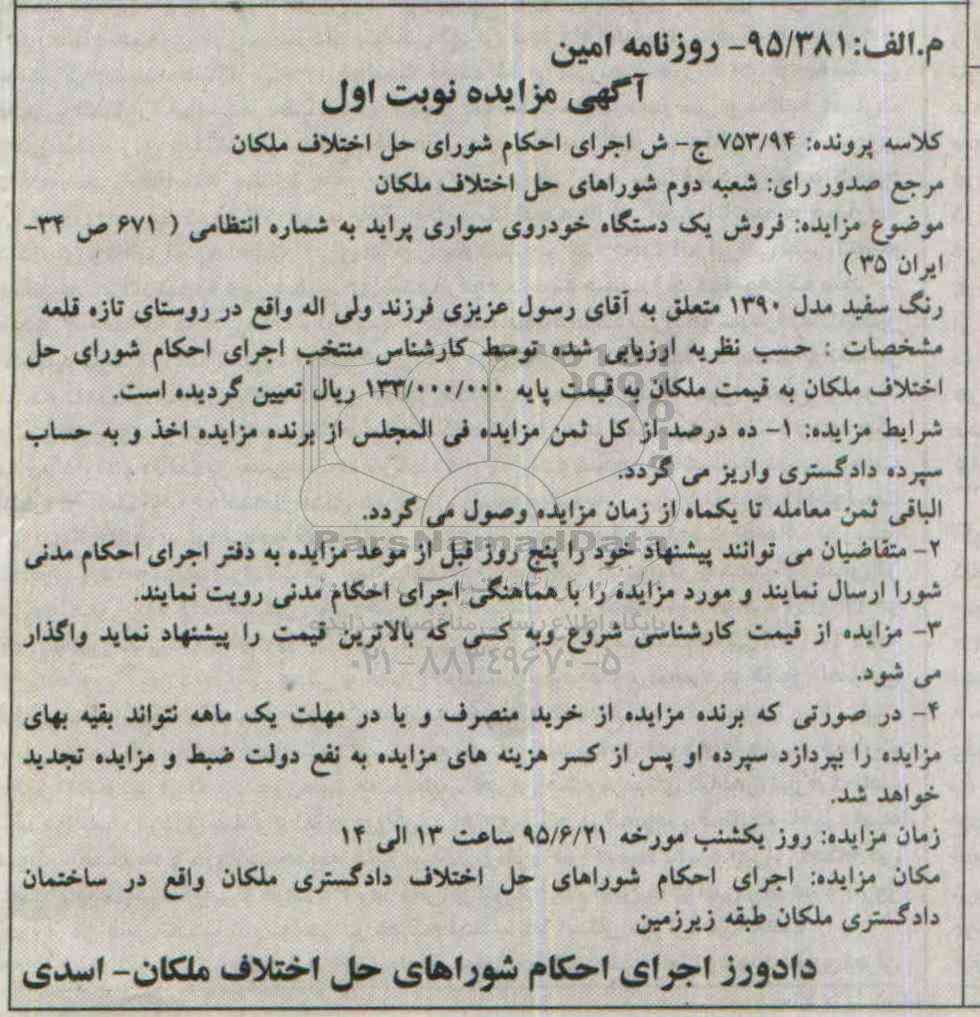 م.الف:۹۵/۳۸۱- روزنامه امین
آگهی مزایده نوبت اول
کلاسه پرونده: ۷۵۳/۹۴ ج- ش اجرای احکام شورای حل اختلاف ملکان
مرجع صدور رای: شعبه دوم شوراهای حل اختلاف ملکان
موضوع مزایده: فروش یک دستگاه خودروی سواری پراید به شماره انتظامی ( ۶۷۱ ص ۳۴-
ایران ۳۵ )
رنگ سفید مدل ۱۳۹۰ متعلق به آقای رسول عزیزی فرزند ولی اله واقع در روستای تازه قلعه
مشخصات : حسب نظریه ارزیابی شده توسط کارشناس منتخب اجرای احکام شورای حل
اختلاف ملکان به قیمت ملکان به قیمت پایه ۱۳۳/۰۰۰/۰۰۰ ریال تعیین گردیده است.
شرایط مزایده: ۱- ده درصد از کل ثمن مزایده فی المجلس از برنده مزایده اخذ و به حساب
سپرده دادگستری واریز می گردد.
الباقی ثمن معامله تا یکماه از زمان مزایده وصول می گردد.
ParsNamadData
۲- متقاضیان می توانند پیشنهاد خود را پنج روز قبل از موعد مزایده به دفتر اجرای احکام مدنی
شورا ارسال نمایند و مورد مزایده را با هماهنگی اجرای احکام مدنی رویت نمایند.
۳- مزایده از قیمت کارشناسی شروع وبه کسی که بالاترین قیمت را پیشنهاد نماید واگذار
می شود.
۰۲۱-۸۸۳۴۹۶۷۰-۵
۴- در صورتی که برنده مزایده از خرید منصرف و یا در مهلت یک ماهه نتواند بقیه بهای
مزایده را بپردازد سپرده او پس از کسر هزینه های مزایده به نفع دولت ضبط و مزایده تجدید
خواهد شد.
زمان مزایده: روز یکشنب مورخه ۹۵/۶/۲۱ ساعت ۱۳ الی ۱۴
مکان مزایده: اجرای احکام شوراهای حل اختلاف دادگستری ملکان واقع در ساختمان
دادگستری ملکان طبقه زیرزمین
دادورز اجرای احکام شوراهای حل اختلاف ملکان- اسدی